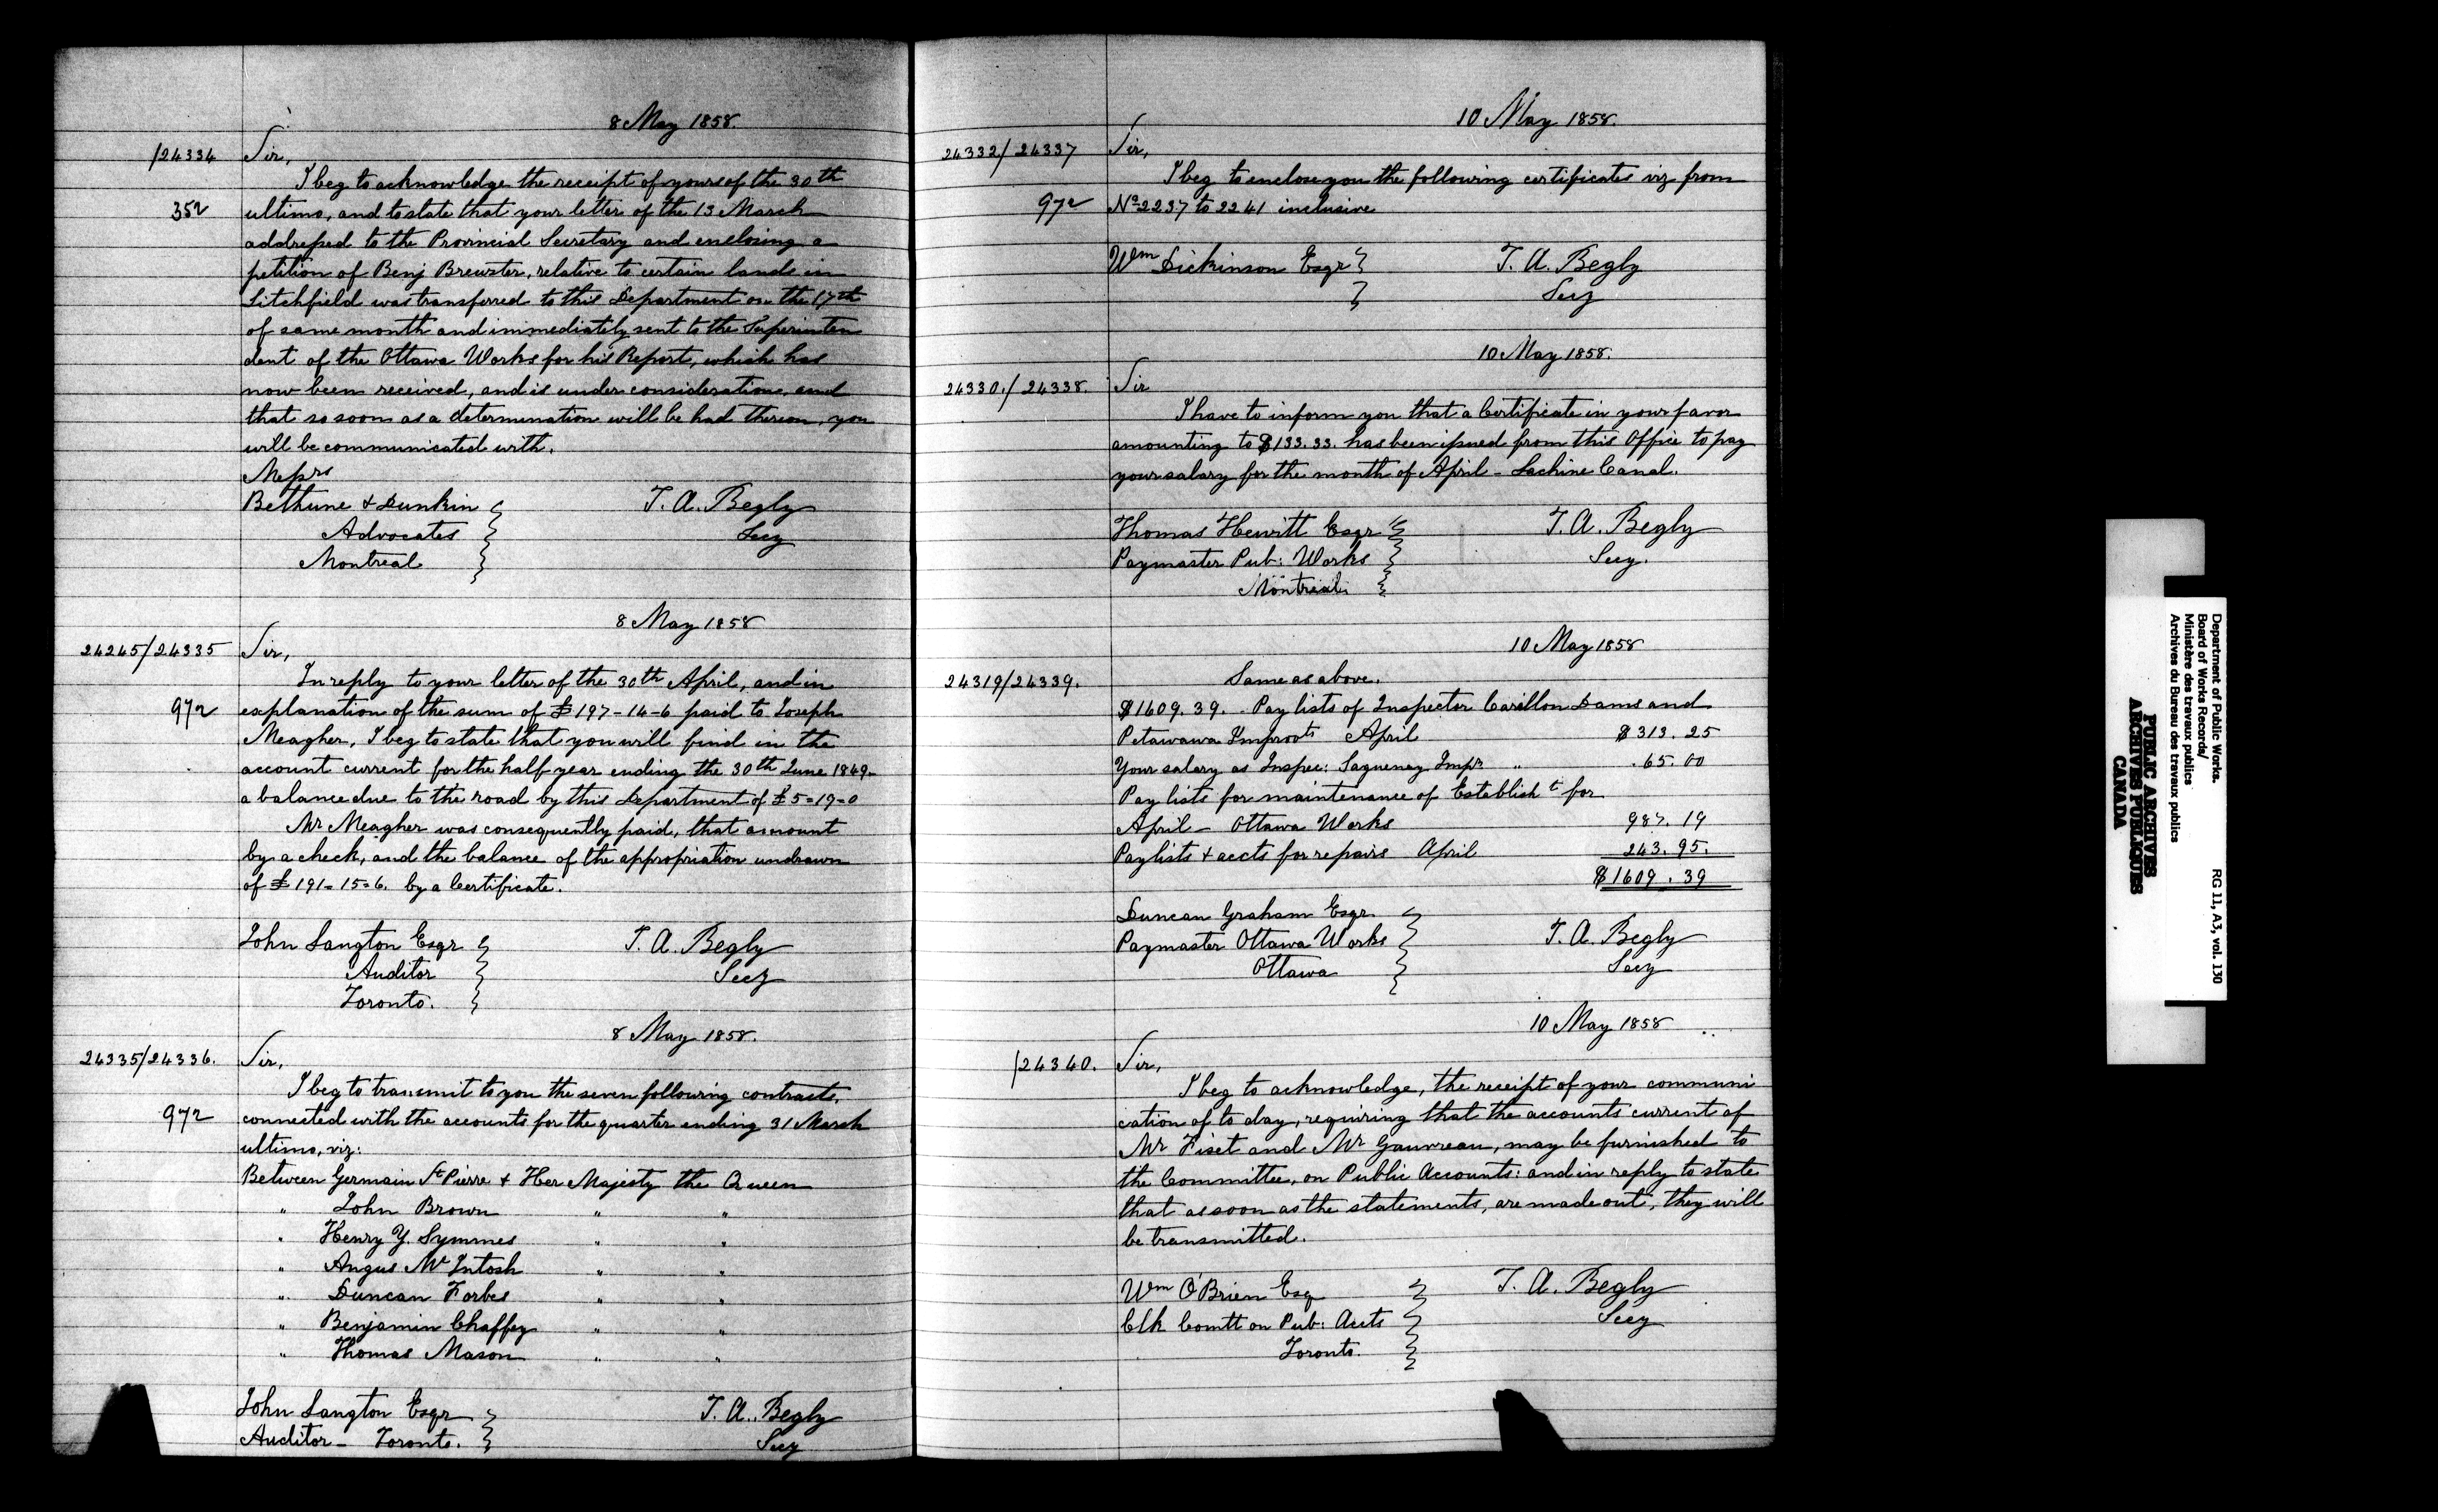 8 May 1858.
/24334 Sir,
I beg to acknowledge the receipt of yours of the 30th
352 ultimo, and to state that your letter of the 13 March
addressed to the Provincial Secretary and enclosing a
petition of Benj Brewster, relative to certain lands in
Litchfield was transferred to this Department on the 17th
of same month and immediately sent to the Superinten
dent of the Ottawa Works for his Report, which has
now been received, and is under consideration, and
that so soon as a determination will be had thereon, you
will be communicated with.
Messrs
Bethune & Dunkin T. A. Begly
Advocates Secy
Montreal
8 May 1858
24245/24335 Sir,
In reply to your letter of the 30th April, and in
972 explanation of the sum of £197-14-6 paid to Joseph
Meagher, I beg to state that you will find in the
account current for the half year ending the 30th June 1849-
a balance due to the road by this Department of £5=19=0
Mr Meagher was consequently paid, that amount
by a check, and the balance of the appropriation undrawn
of £191=15=6. by a Certificate.
John Langton Esqr T. A. Begly
Auditor Secy
Toronto.
8 May 1858.
24335/24336. Sir,
I beg to transmit to you the seven following contracts,
972 connected with the accounts for the quarter ending 31 March
ultimo, viz:
Between Germain St Pierre & Her Majesty the Queen
" John Brown " "
" Henry Y. Symmes " "
" Angus McIntosh " "
" Duncan Forbes " "
" Benjamin Chaffey " "
" Thomas Mason " "
John Langton Esqr T. A. Begly
Auditor - Toronto. Secy
10 May 1858.
24332/24337 Sir,
I beg to enclose you the following certificates viz from
972 No 2237 to 2241 inclusive
Wm Dickinson Esqr T. A. Begly
Secy
10 May 1858.
24330./24338. Sir
I have to inform you that a Certificate in your favor
amounting to $133.33. has been issued from this Office to pay
your salary for the month of April - Lachine Canal.
Thomas Hewitt Esqr T. A. Begly
Paymaster Pub: Works Secy.
Montreal.
10 May 1858
24319/24339. Same as above.
$1609.39. - Pay lists of Inspector Carillon Dams and
Petawawa Improots April $313.25
Your salary as Inspec: Saguenay Impr " .65.00
Pay lists for maintenance of Establisht for
April - Ottawa Works 987.19
Paylists & accts for repairs April 243.95.
$1609.39
Duncan Graham Esqr
Paymaster Ottawa Works T. A. Begly
Ottawa Secy
10 May 1858
/24340. Sir,
I beg to acknowledge, the receipt of your communi
cation of to day, requiring that the accounts current of
Mr Fiset and Mr Gauvreau, may be furnished to
the Committee, on Public Accounts: and in reply to state
that as soon as the statements, are made out, they will
be transmitted.
Wm O'Brien Esq T. A. Begly
Clk Comtt on Pub: Accts Secy
Toronto.
Department of Public Works.
Board of Works Records/
Ministère des travaux publics
Archives du Bureau des travaux publics
RG 11, A3, vol. 130
PUBLIC ARCHIVES
ARCHIVES PUBLIQUES
CANADA